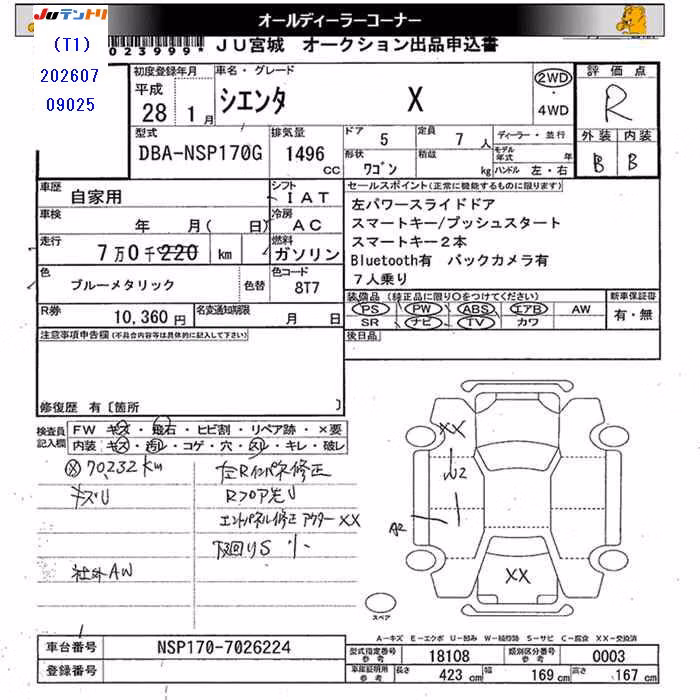 JUテントリ
オールディーラーコーナー
(T1)
202607
09025
023999* JU宮城 オークション出品申込書
初度登録年月 車名・グレード 2WD 評価点
平成 28年 1月 シエンタ X ・4WD R
型式 排気量 ドア 5 定員 7人 ディーラー・並行 外装 内装
DBA-NSP170G 1496cc 形状 ワゴン 積載 kg モデル年式 年 ハンドル 左・右 B B
車歴 自家用 シフト IAT セールスポイント(正常に機能するものに限ります)
車検 年 月( 日) 冷房 AC 左パワースライドドア
スマートキー/プッシュスタート
走行 7万0千220km 燃料 ガソリン スマートキー2本
Bluetooth有 バックカメラ有
色 ブルーメタリック 色替 色コード 8T7 7人乗り
R券 10,360円 名変通知期限 月 日 装備品(純正品に限り○をつけてください) 新車保証書
PS PW ABS エアB AW 有・無
SR ナビ TV カワ
注意事項申告欄(不具合内容等は具体的に記入して下さい) 後日品
修復歴 有〔箇所 〕
検査員記入欄 FW キズ・飛石・ヒビ割・リペア跡・×要
内装 キズ・汚レ・コゲ・穴・スレ・キレ・破レ
70,232km 左Rインパネ修正
キズU Rフロア先U
エンドパネル修正 アウターXX
下回りS
社外AW
XX
U2
A2
XX
スペア
A−キズ E−エクボ U−凹み W−補修跡 S−サビ C−腐食 XX−交換済
車台番号 NSP170-7026224 型式指定番号 参考 18108 類別区分番号 参考 0003
登録番号 車庫証明用 参考 長さ 423 cm 幅 169 cm 高さ 167 cm